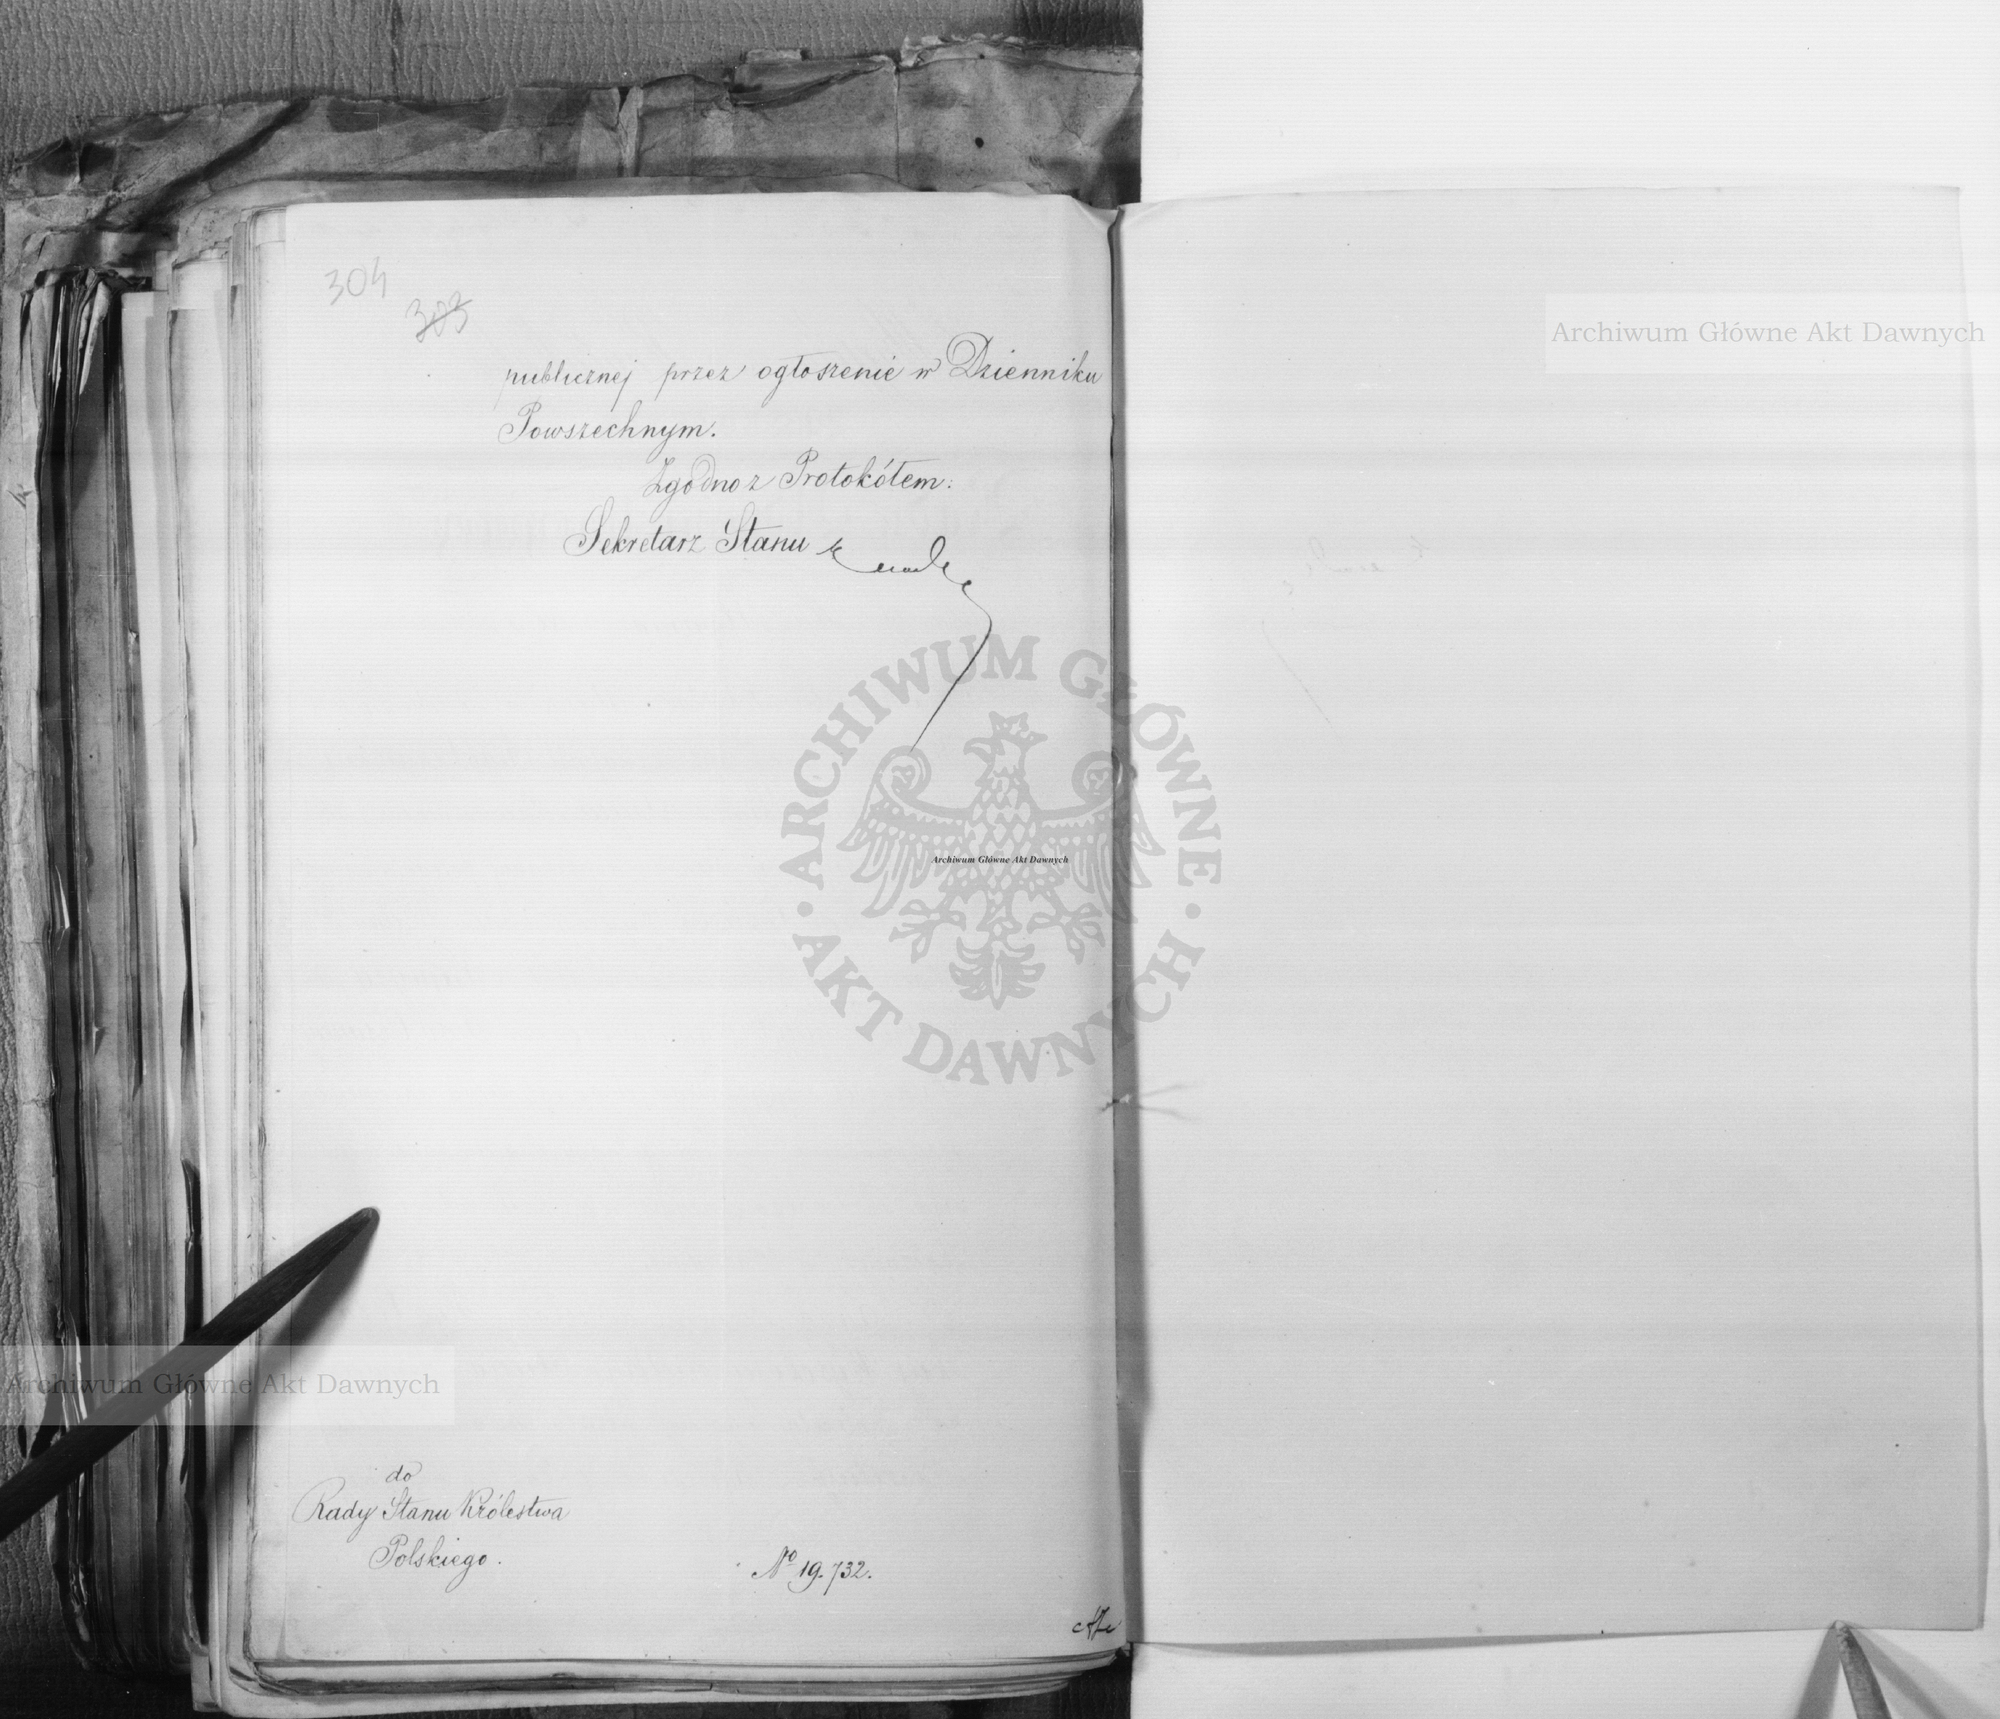 304
303
publicznej przez ogłoszenie w Dzienniku
Powszechnym.
Zgodno z Protokółem:
Sekretarz Stanu
do
Rady Stanu Królestwa
Polskiego.
No 19.732.
Archiwum Główne Akt Dawnych
Archiwum Główne Akt Dawnych
Archiwum Główne Akt Dawnych
ARCHIWUM GŁÓWNE
AKT DAWNYCH